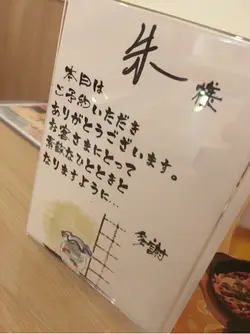 朱 様
本日は
ご予約いただき
ありがとうございます。
お客さまにとって
素敵なひとときと
なりますように…
感謝